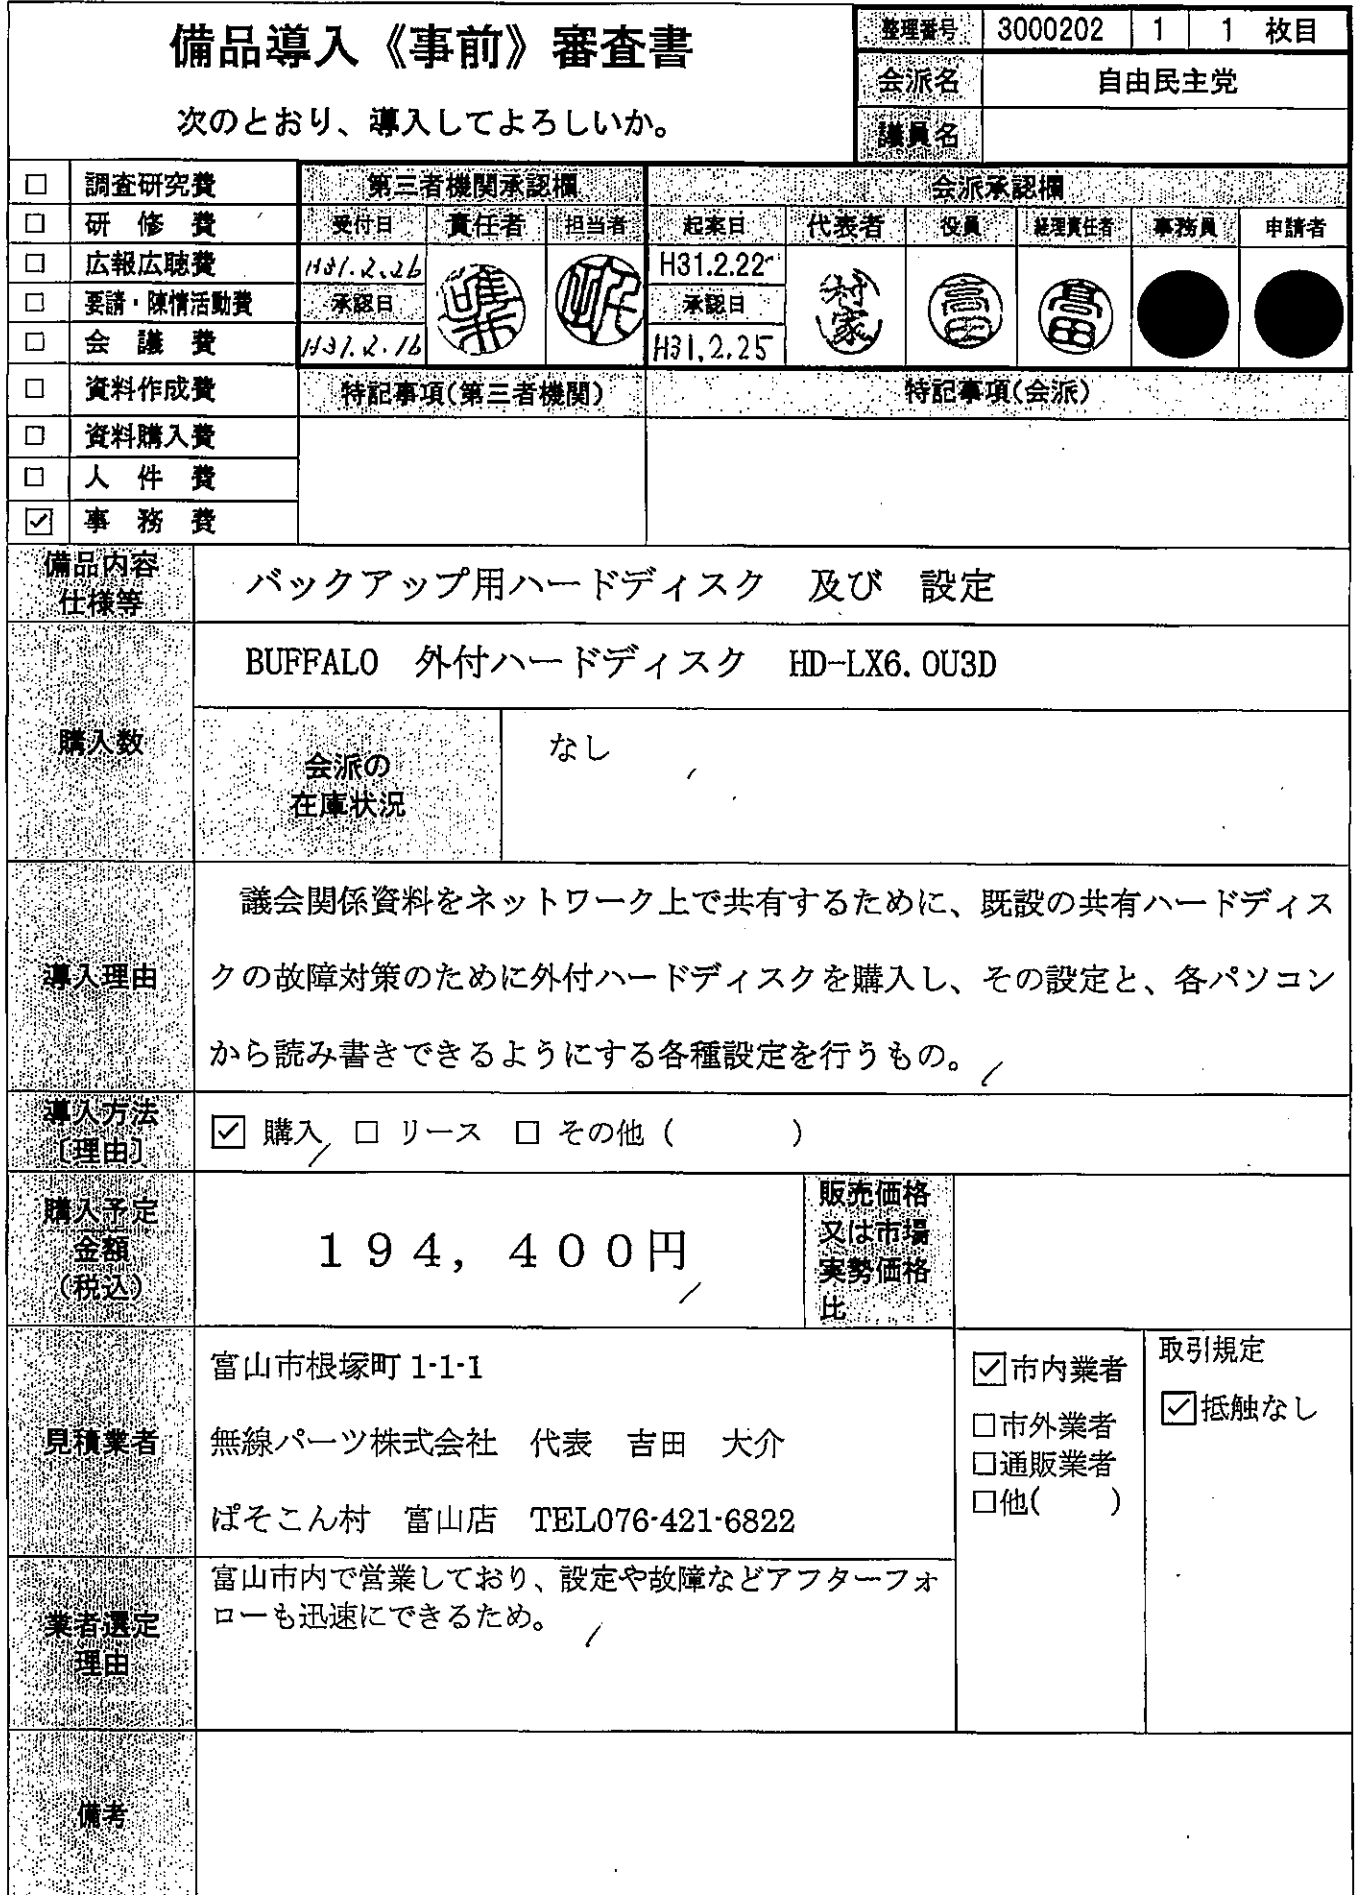 備品導入《事前》審査書
次のとおり、導入してよろしいか。
整理番号 3000202 1 1 枚目
会派名 自由民主党
議員名
□ 調査研究費
□ 研修費
□ 広報広聴費
□ 要請・陳情活動費
□ 会議費
□ 資料作成費
□ 資料購入費
□ 人件費
☑ 事務費
第三者機関承認欄
受付日 責任者 担当者
H31.2.26
承認日
H31.2.16
会派承認欄
起案日 代表者 役員 経理責任者 事務員 申請者
H31.2.22
承認日
H31.2.25
村家
高田
高田
特記事項(第三者機関) 特記事項(会派)
備品内容
仕様等
バックアップ用ハードディスク 及び 設定
購入数
BUFFALO 外付ハードディスク HD-LX6.0U3D
会派の
在庫状況
なし
導入理由
議会関係資料をネットワーク上で共有するために、既設の共有ハードディス
クの故障対策のために外付ハードディスクを購入し、その設定と、各パソコン
から読み書きできるようにする各種設定を行うもの。
導入方法
〔理由〕
☑ 購入 □ リース □ その他（ ）
購入予定
金額
（税込）
194,400円
販売価格
又は市場
実勢価格
比
見積業者
富山市根塚町1-1-1
無線パーツ株式会社 代表 吉田 大介
ぱそこん村 富山店 TEL076-421-6822
☑市内業者
□市外業者
□通販業者
□他( )
取引規定
☑抵触なし
業者選定
理由
富山市内で営業しており、設定や故障などアフターフォ
ローも迅速にできるため。
備考